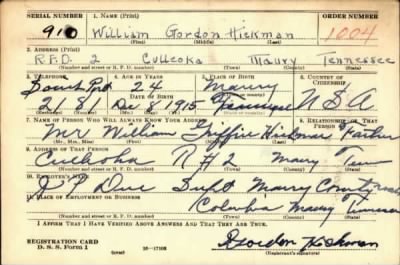 SERIAL NUMBER 1. Name (Print) ORDER NUMBER
910 William Gordon Hickman 1004
(First) (Middle) (Last)
2. Address (Print)
R.F.D. 2 Culleoka Maury Tennessee
(Number and street or R. F. D. number) (Town) (County) (State)
3. Telephone 4. Age in Years 5. Place of Birth 6. Country of Citizenship
24 Maury
Date of Birth
2181 Dec 8 1915 Tennessee USA
7. Name of Person Who Will Always Know Your Address 8. Relationship of That Person
Mr William Griffin Hickman Father
(Mr., Mrs., Miss) (First) (Middle) (Last)
9. Address of That Person
Culleoka R #2 Maury Tenn
(Number and street or R. F. D. number) (Town) (County) (State)
10. Employer's Name
J. P. Supt Maury County
11. Place of Employment or Business
Columbia Maury Tennessee
(Number and street or R. F. D. number) (Town) (County) (State)
I Affirm That I Have Verified Above Answers and That They Are True.
REGISTRATION CARD
D. S. S. Form 1 (over) 16—17105 Gordon Hickman
(Registrant's signature)